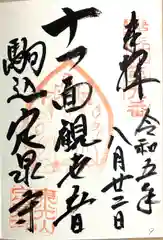 奉拝
令和五年
八月廿二日
十一面観世音
駒込 定泉寺